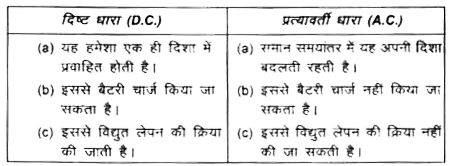 दिष्ट धारा (D.C.)
प्रत्यावर्ती धारा (A.C.)
(a) यह हमेशा एक ही दिशा में
प्रवाहित होती है।
(b) इससे बैटरी चार्ज किया जा
सकता है।
(c) इससे विद्युत लेपन की क्रिया
की जाती है।
(a) समान समयांतर में यह अपनी दिशा
बदलती रहती है।
(b) इससे बैटरी चार्ज नहीं किया जा
सकता है।
(c) इससे विद्युत लेपन की क्रिया नहीं
की जा सकती है।